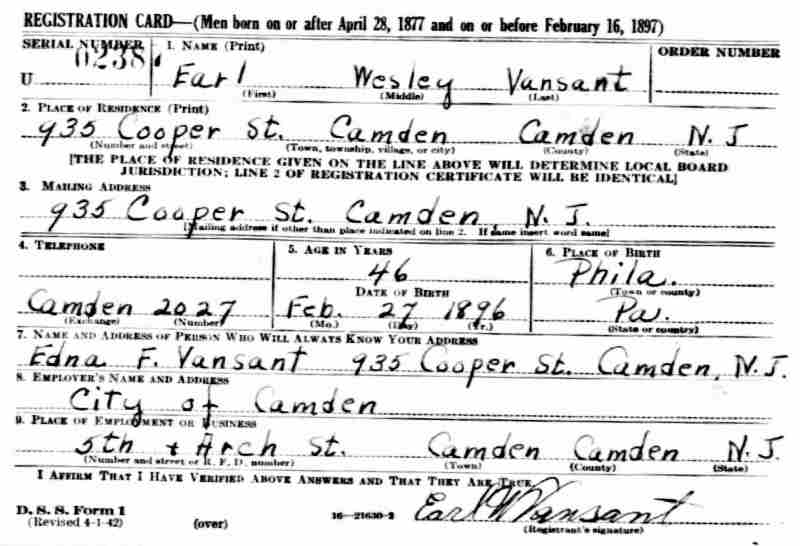 REGISTRATION CARD—(Men born on or after April 28, 1877 and on or before February 16, 1897)
SERIAL NUMBER 1. NAME (Print) ORDER NUMBER
U 0238 Earl Wesley Vansant
(First) (Middle) (Last)
2. PLACE OF RESIDENCE (Print)
935 Cooper St. Camden Camden N. J
(Number and street) (Town, township, village, or city) (County) (State)
[THE PLACE OF RESIDENCE GIVEN ON THE LINE ABOVE WILL DETERMINE LOCAL BOARD
JURISDICTION; LINE 2 OF REGISTRATION CERTIFICATE WILL BE IDENTICAL]
3. MAILING ADDRESS
935 Cooper St. Camden, N. J.
[Mailing address if other than place indicated on line 2. If same insert word same]
4. TELEPHONE 5. AGE IN YEARS 6. PLACE OF BIRTH
46 Phila.
DATE OF BIRTH (Town or county)
Camden 2027 Feb. 27 1896 Pa.
(Exchange) (Number) (Mo.) (Day) (Yr.) (State or country)
7. NAME AND ADDRESS OF PERSON WHO WILL ALWAYS KNOW YOUR ADDRESS
Edna F. Vansant 935 Cooper St. Camden, N. J.
8. EMPLOYER'S NAME AND ADDRESS
City of Camden
9. PLACE OF EMPLOYMENT OR BUSINESS
5th + Arch St. Camden Camden N. J
(Number and street or R. F. D. number) (Town) (County) (State)
I AFFIRM THAT I HAVE VERIFIED ABOVE ANSWERS AND THAT THEY ARE TRUE.
D. S. S. Form 1
(Revised 4-1-42) (over) 16—21630-2 Earl W Vansant
(Registrant's signature)